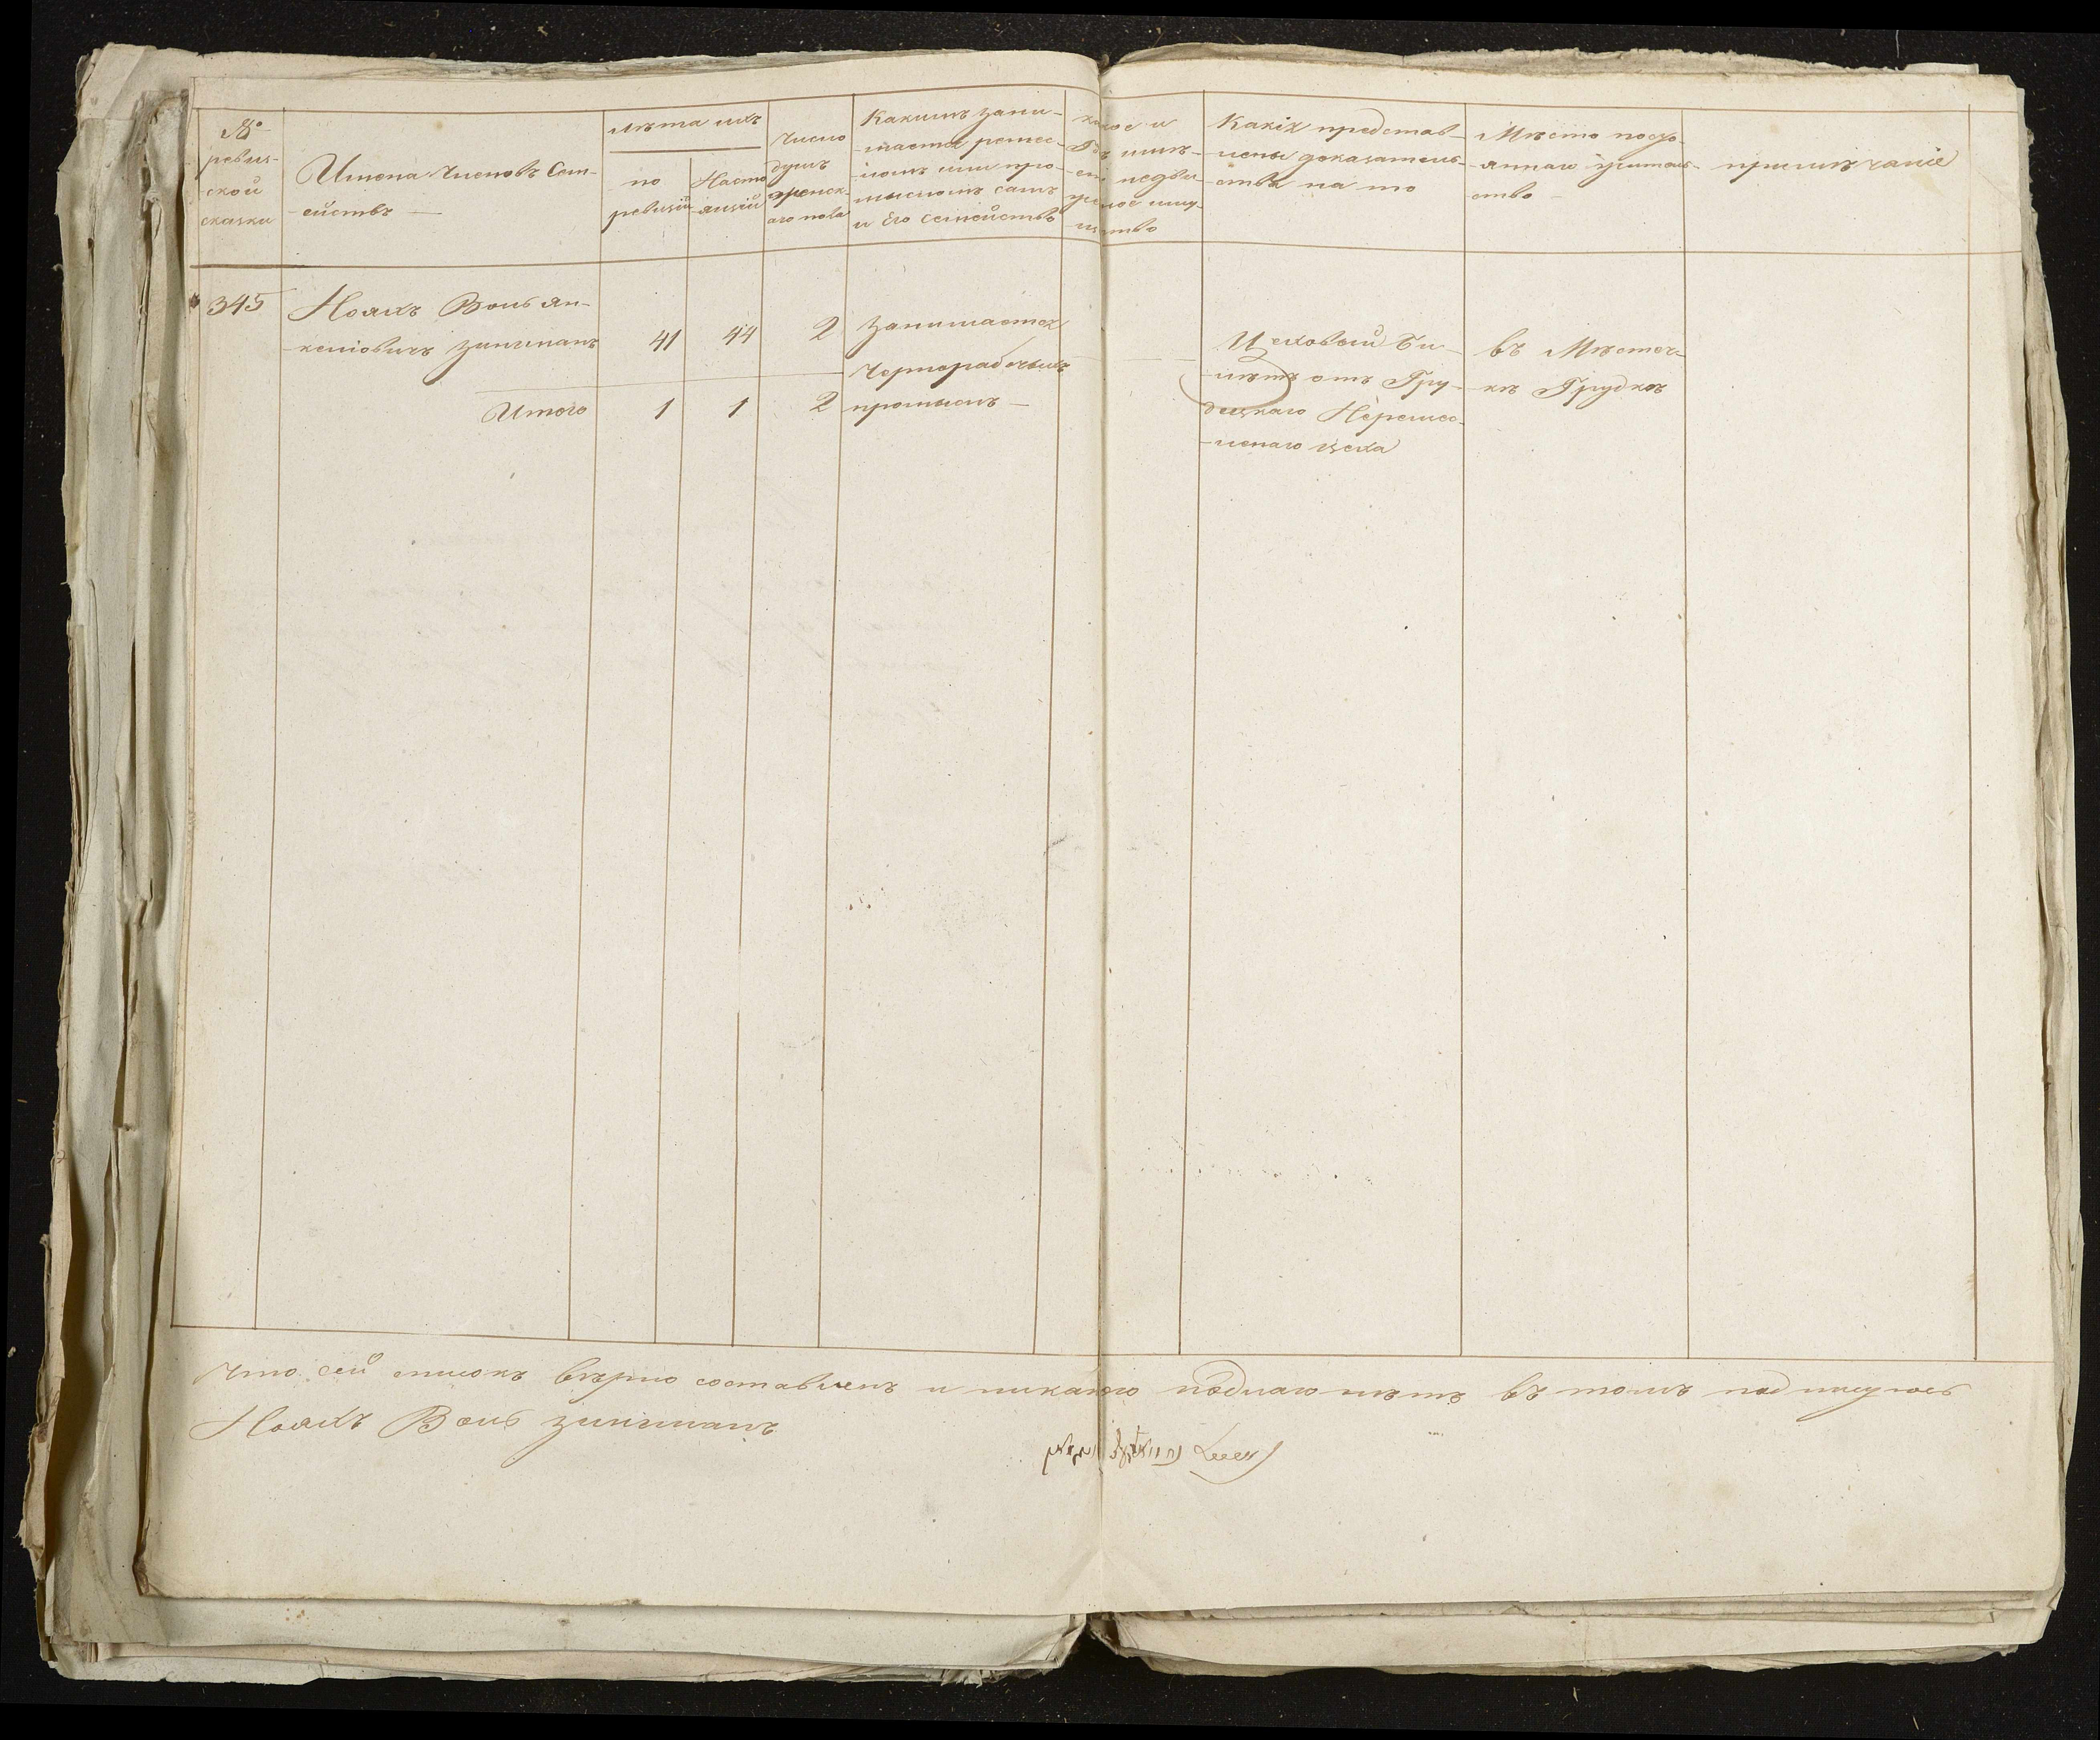 №
ревиз-
ской
сказки
Имена Членовъ Сем-
ействъ —
лѣта ихъ
по
ревизіи
Насто
ящій
Число
душъ
женск-
аго пола
Какимъ зани-
мается ремес-
ломъ или про-
мысломъ самъ
и Его Семейство
какое и
Гдѣ имѣ-
етъ недви-
жимое иму-
щество
Какіх представ-
лены доказатель-
ства на то
Мѣсто посто-
яннаго жительс-
тво —
примѣчаніе
345
Нояхъ Воль Ян-
келіовичъ Зингманъ
41
44
2
Занимается
Чернорабочымъ
промысл —
Итого
1
1
2
Цеховый Би-
лѣтъ отъ Гру-
децкаго Неремес-
ленаго цеха
въ Мѣстеч-
кѣ Грудкѣ
Что сей списокъ вѣрно составленъ и никакого подлаго нѣтъ въ томъ подписуюсь
Нояхъ Воль Зингманъ